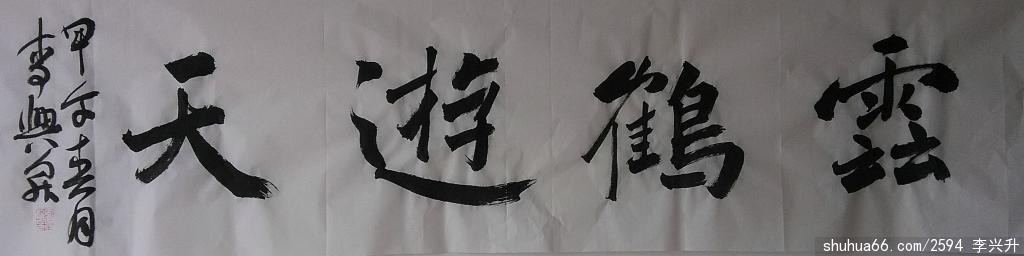 雲鶴遊天
甲午春月
李興昇
shuhua66.com/2594 李兴升